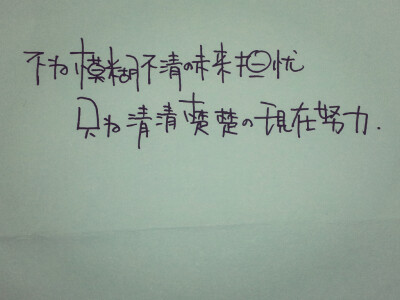 不为模糊不清の未来担忧
只为清清楚楚の現在努力.